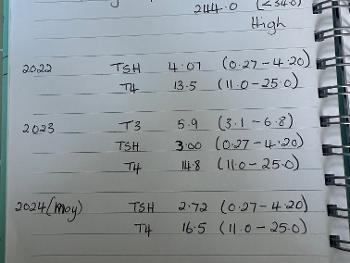 244.0 (<34.0)
High
2022 TSH 4.07 (0.27-4.20)
T4 13.5 (11.0-25.0)
2023 T3 5.9 (3.1-6.8)
TSH 3.00 (0.27-4.20)
T4 14.8 (11.0-25.0)
2024(May) TSH 2.72 (0.27-4.20)
T4 16.5 (11.0-25.0)